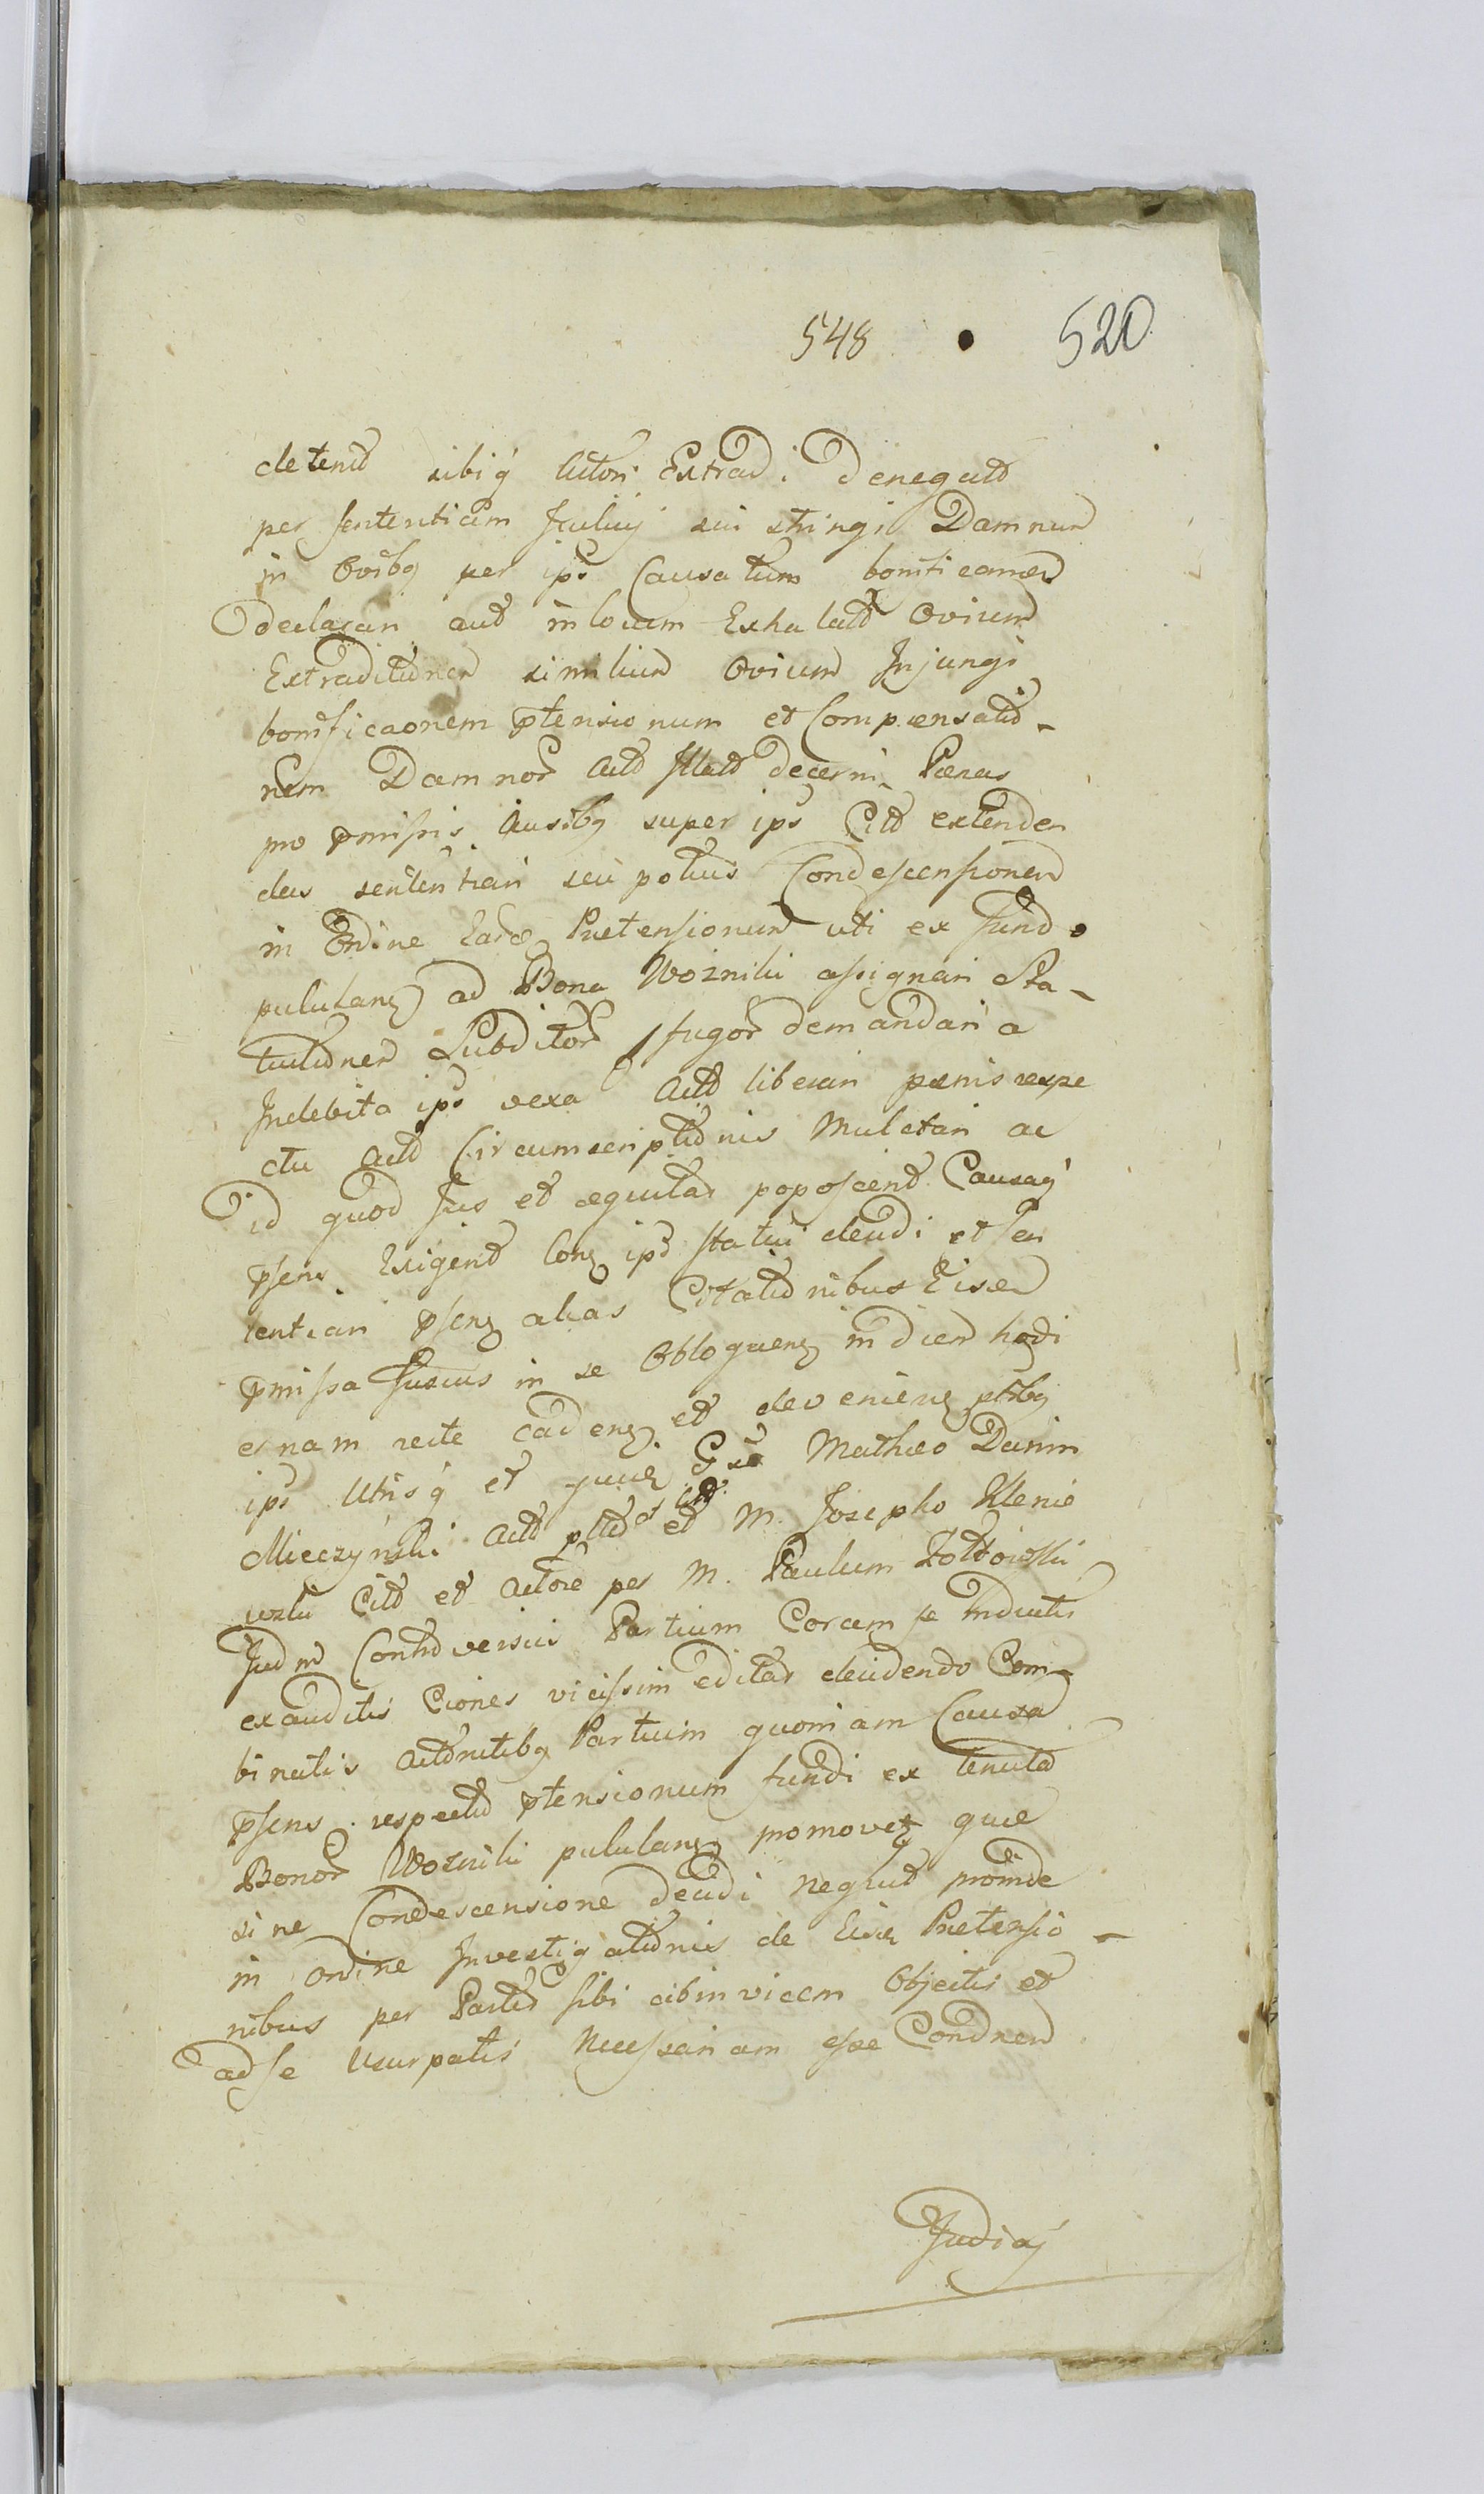 548 520
detent sibiq Actori Extradi Denegat
per sententiam Juluij sui stringi Damnum
in Ovibq per ips Causatum bonificaoem
declarari aut in locum Exhalat Ovium
Extraditionem similium Ovium Injungi
bonificaonem ptensionum et Compensatio-
nem Damnor Act Illat decerni Pænas
pro pmissis Ausibq super ips Citt extenden
das sententiari seu potius Condescensionem
in Ordine Earq Pretensionum uti ex fundo
pululanz ad Bona Woźniki assignari Sta-
tuitionem Subditor fugor demandari a
Indebita ips vexa Act liberari pænis respe
ctu Act Circumscriptionis Mulctari ac
id quod Jus et æquitas poposcent Causaq
psens Exigent Conz ips statui decidi et sen
tentiari psenz alias Citationibus Eisdem
pmissa fusius in se Obloquenz in diem hodi
ernam recte cadenz et devenienz ptibq
ips Utrisq et Gso Matheo Dunin
Mieczyński Act et M. Josepho Klenie
wski Citt et Actore per M. Paulum Żołtowski
Judm Controversiis Partium Coram se Inductis
exauditis Ciones vicissim editas decidendo Com-
binatis Actoritatibq Partium quoniam Causa
psens respectu ptensionum fundi ex tenuta
Bonor Woźniki pululanz promovetz quæ
sine Condescensione decidi nequit proinde
in ordine Investigationis de Eisq Pretensio-
nibus per Partes sibi abinvicem Objectis et
ad se Usurpatis Necessariam esse Condnem
Judicij